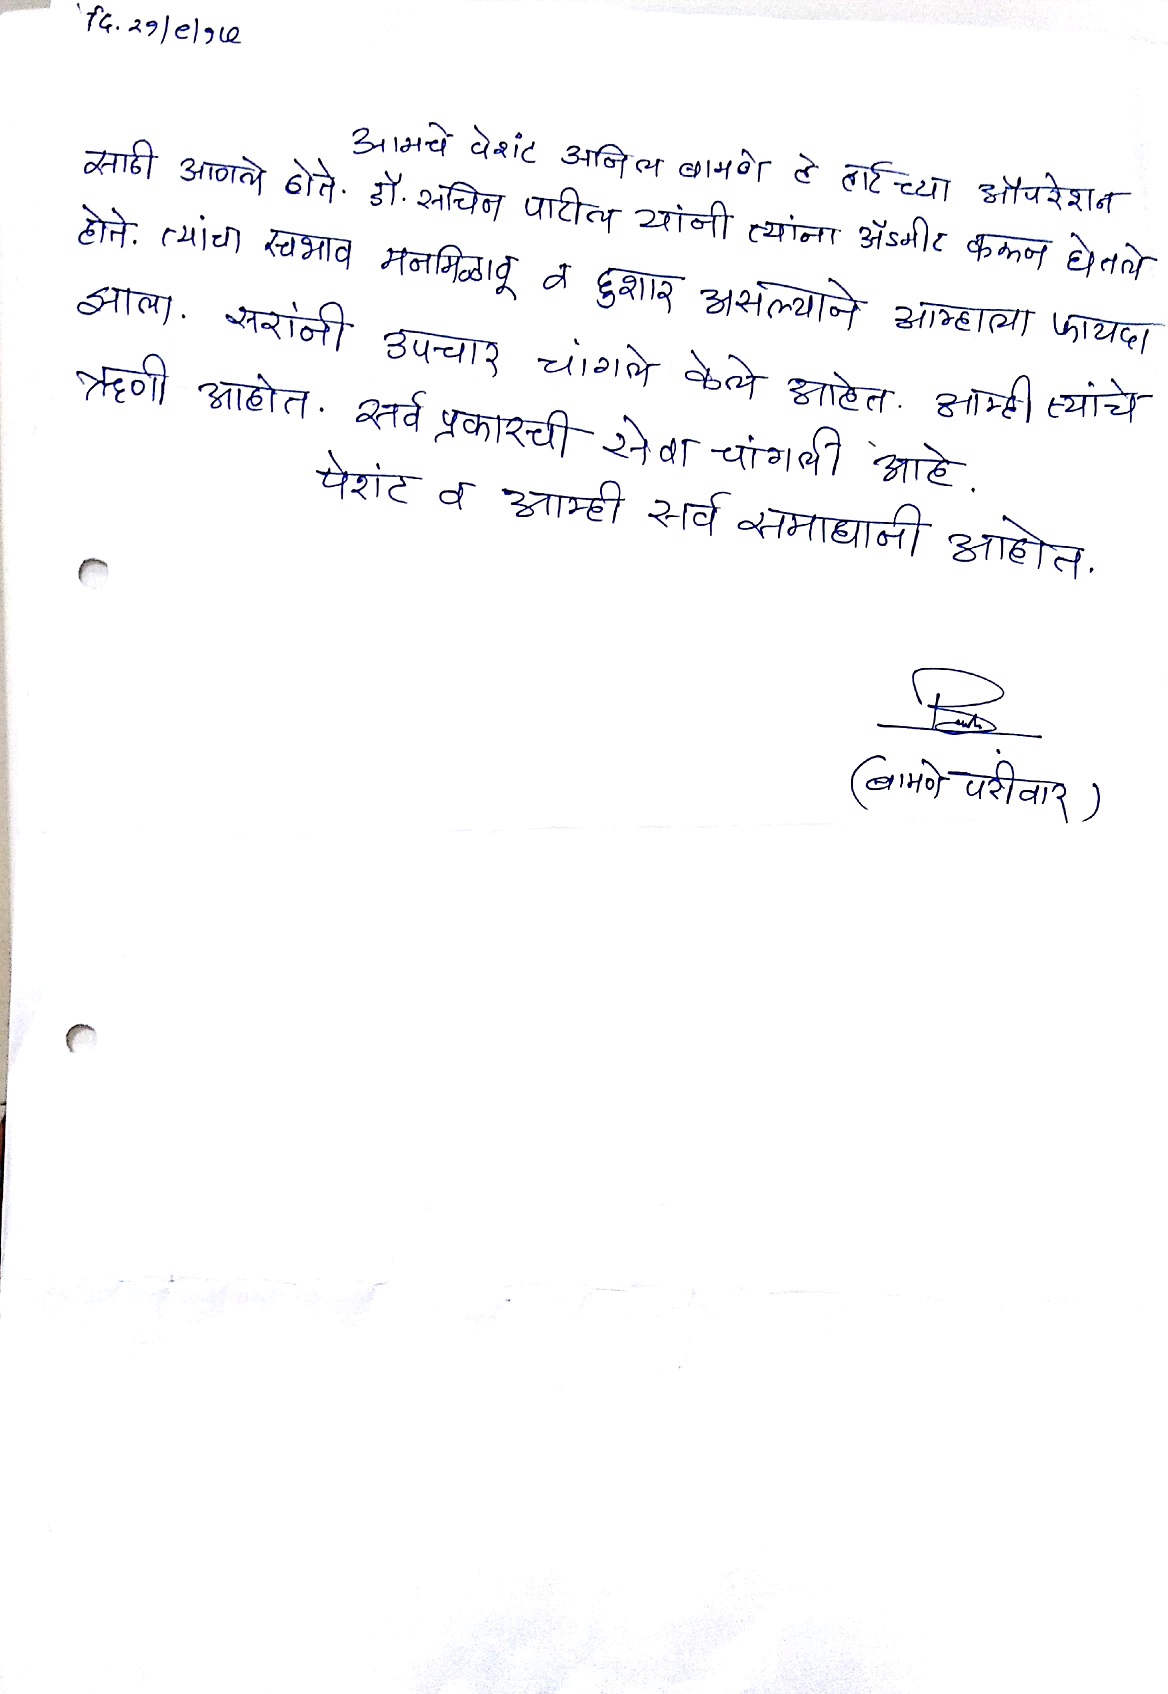 दि. २१/९/१७
आमचे पेशंट अनिल बामणे हे हार्टच्या ऑपरेशन
साठी आणले होते. डॉ. सचिन पाटील यांनी त्यांना ॲडमीट करून घेतले
होते. त्यांचा स्वभाव मनमिळावू व हुशार असल्याने आम्हाला फायदा
झाला. सरांनी उपचार चांगले केले आहेत. आम्ही त्यांचे
ऋणी आहोत. सर्व प्रकारची सेवा चांगली आहे.
पेशंट व आम्ही सर्व समाधानी आहोत.
(बामणे परीवार)